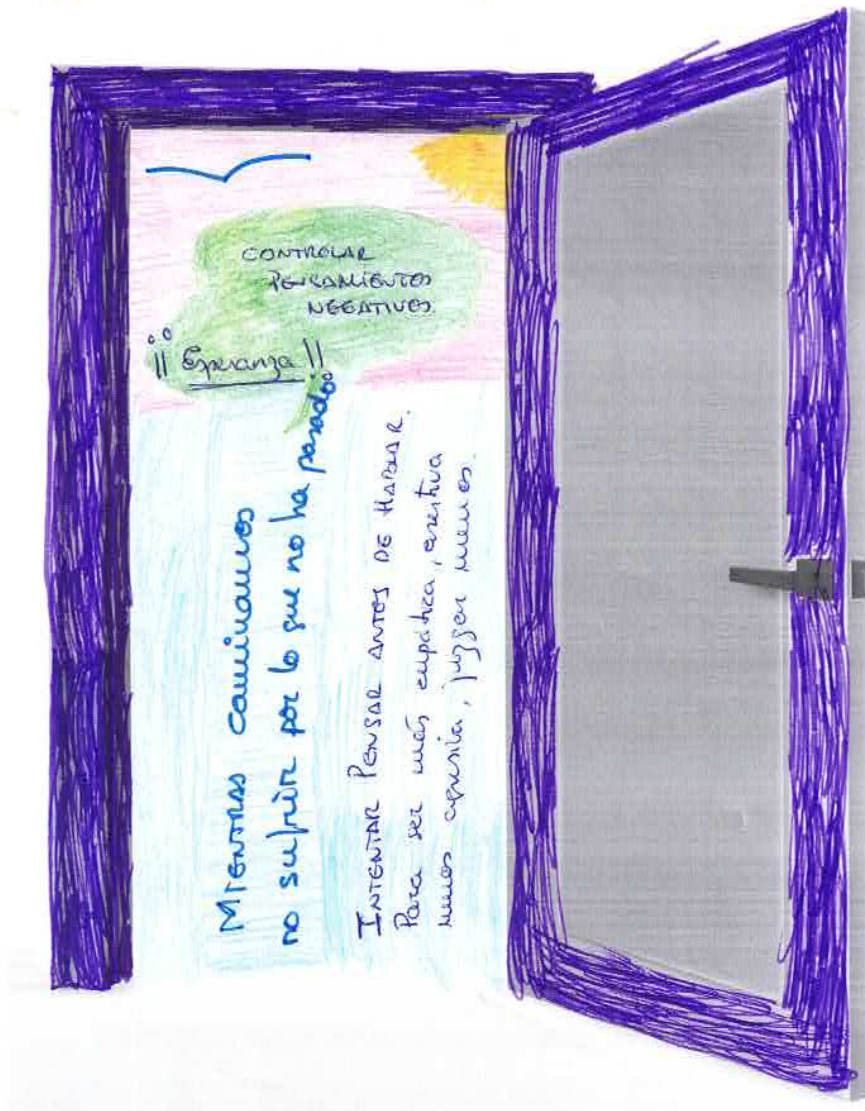 CONTROLAR
PENSAMIENTOS
NEGATIVOS.
¡¡ Esperanza !!
MIENTRAS caminamos
no sufrir por lo que no ha pasado
INTENTAR PENSAR ANTES DE HABLAR.
Para ser más empática, asertiva
menos , juzgar menos.